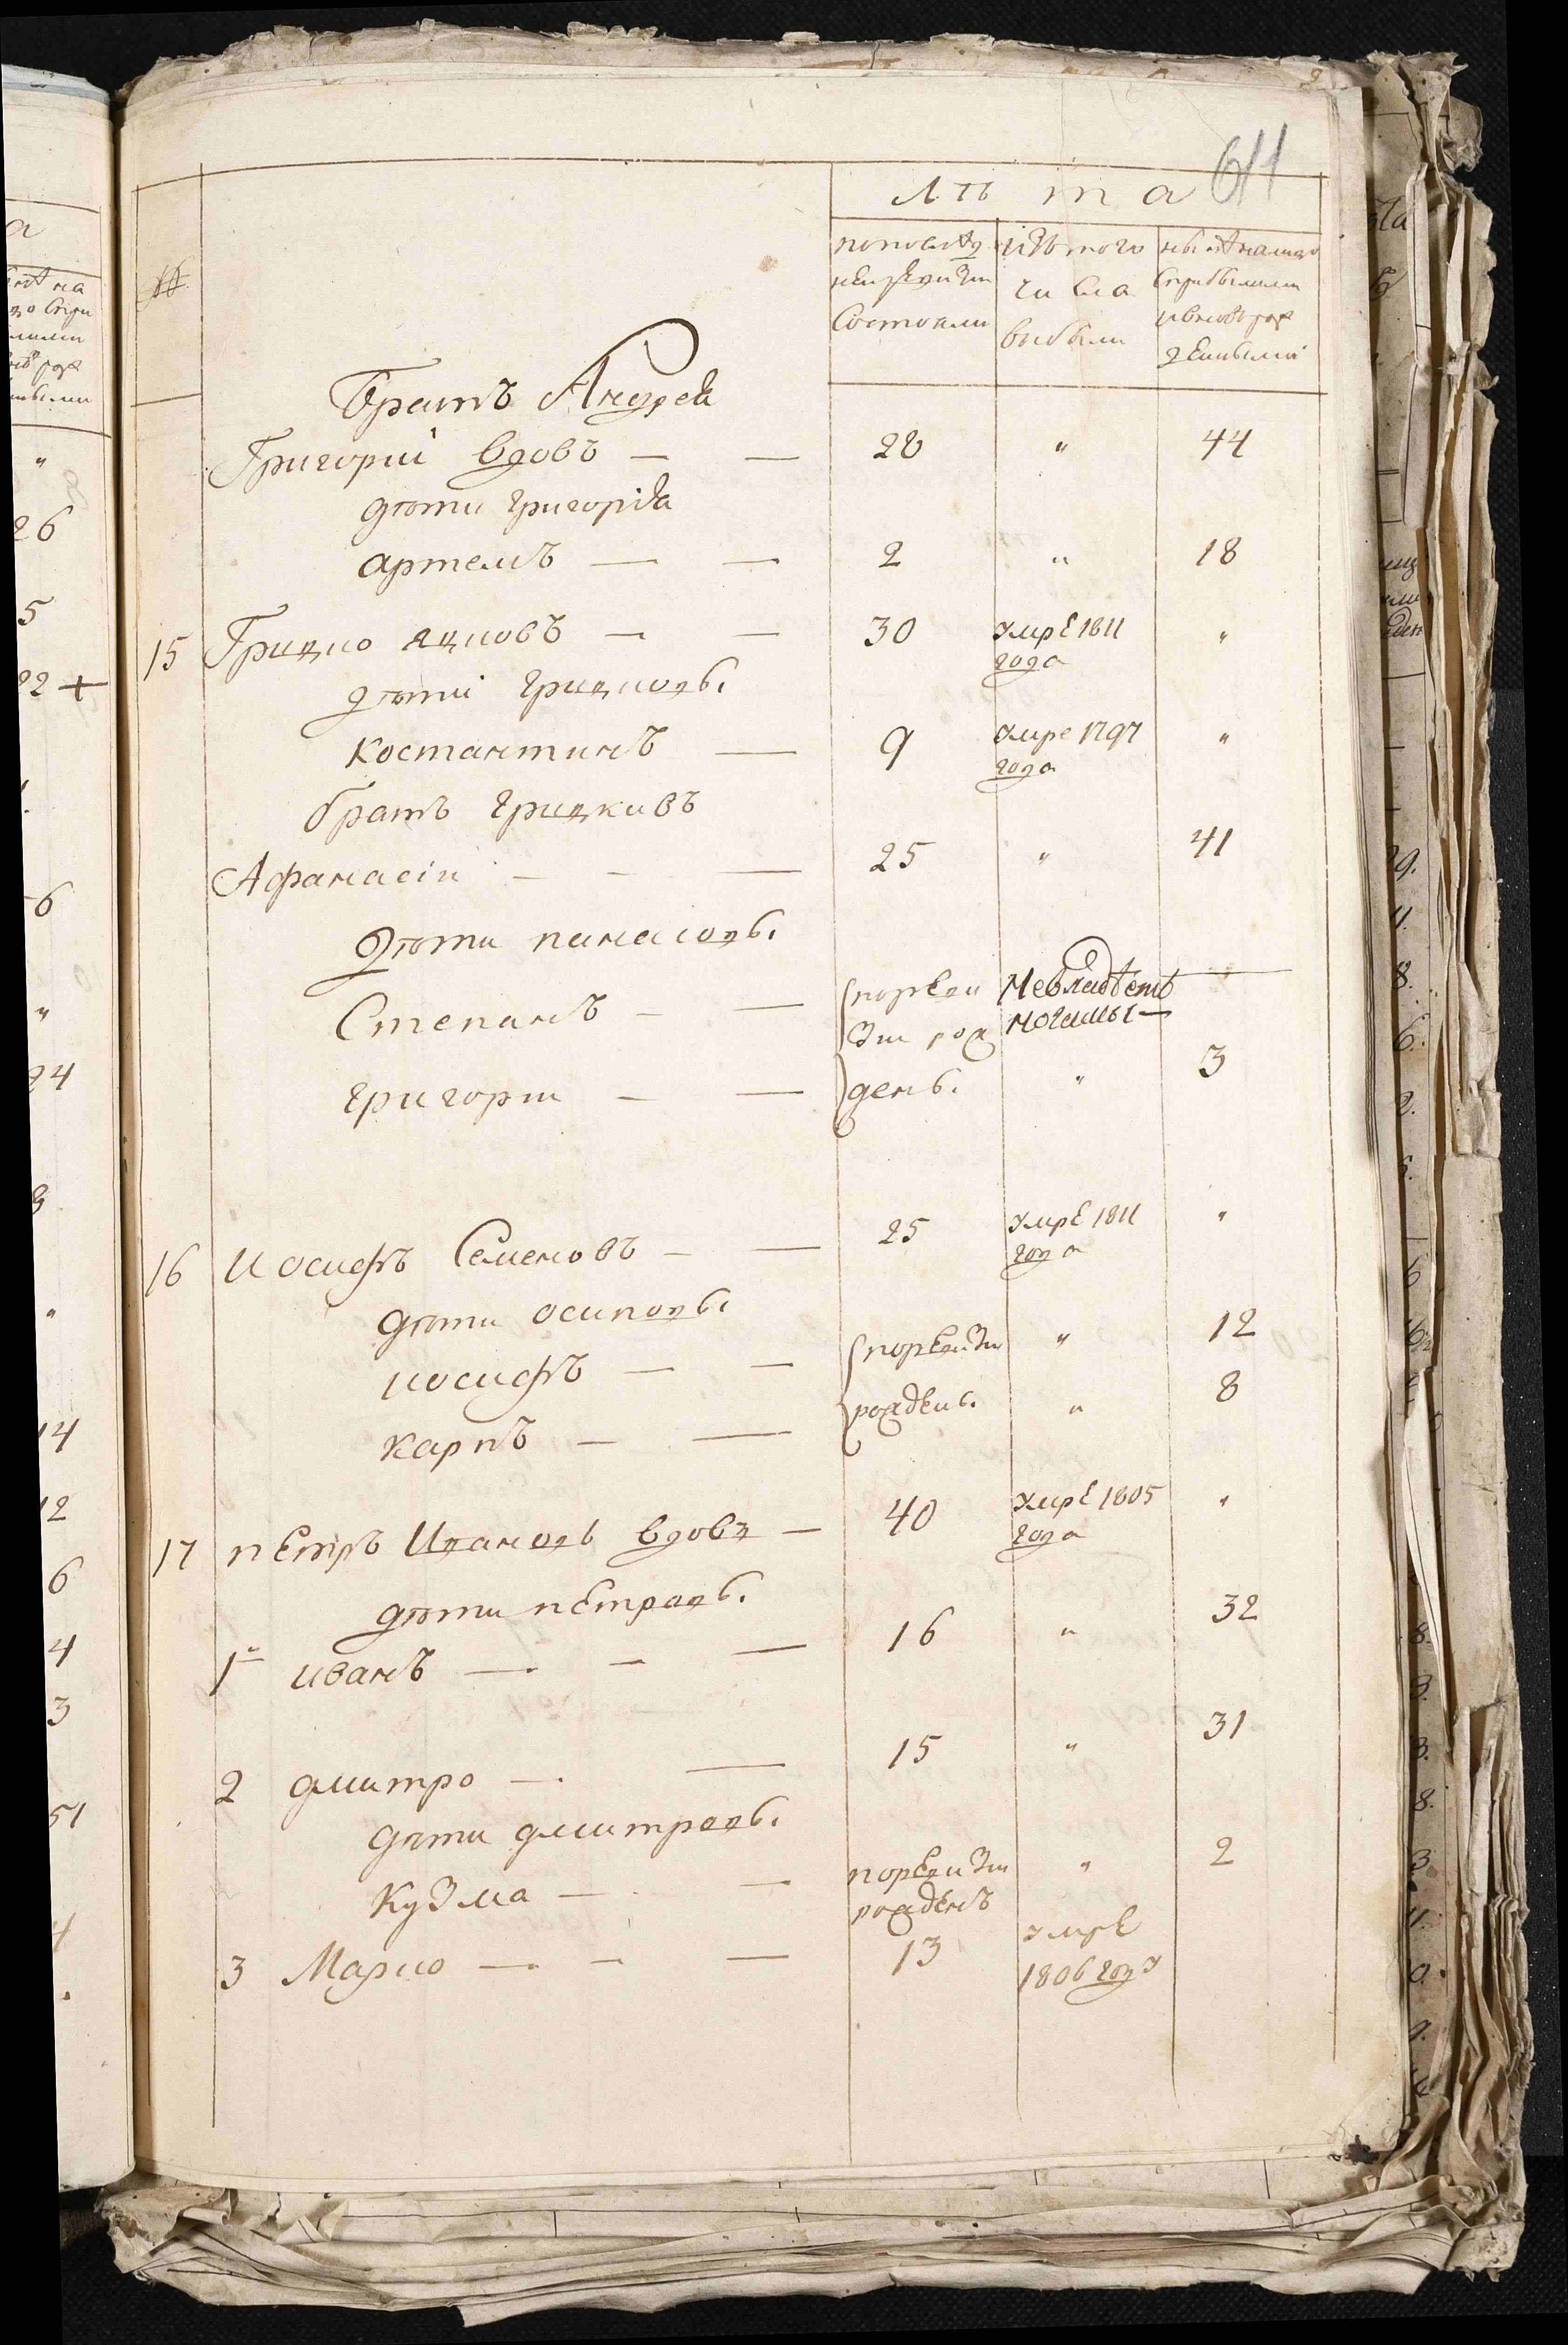 611
№
лѣта
попослѣд
нейревизіи
Состояли
изъ того
числа
выбыли
нынѣ налицо
Сприбылыми
и вновь рож
денными
братъ Андрея
Григорій вдовъ — — 28 " 44
дѣти григорія
артемъ — — 2 " 18
15 Грицко яцковъ — — 30 умре 1811 "
года
дѣти грицковы
костантинъ — 9 умре 1797 "
года
братъ грицкивъ
Афанасіи — — — 25 " 41
дѣти панасовы
Степанъ — — поревизіи рожденъ
григории — — " 3
16 Иосифъ Семеновъ — — 25 умре 1811 "
года
дѣти осиповы
иосифъ — — поревизіи " 12
карпъ — — рождены " 8
17 петръ Ивановъ вдовъ — 40 умре 1805 "
года
дѣти петровы
1й иванъ — — — 16 " 32
2 дмитро — — 15 " 31
дѣти дмитровы
Кузма — — поревизіи " 2
рожденъ
3 Марко — — — 13 умре
1806 году